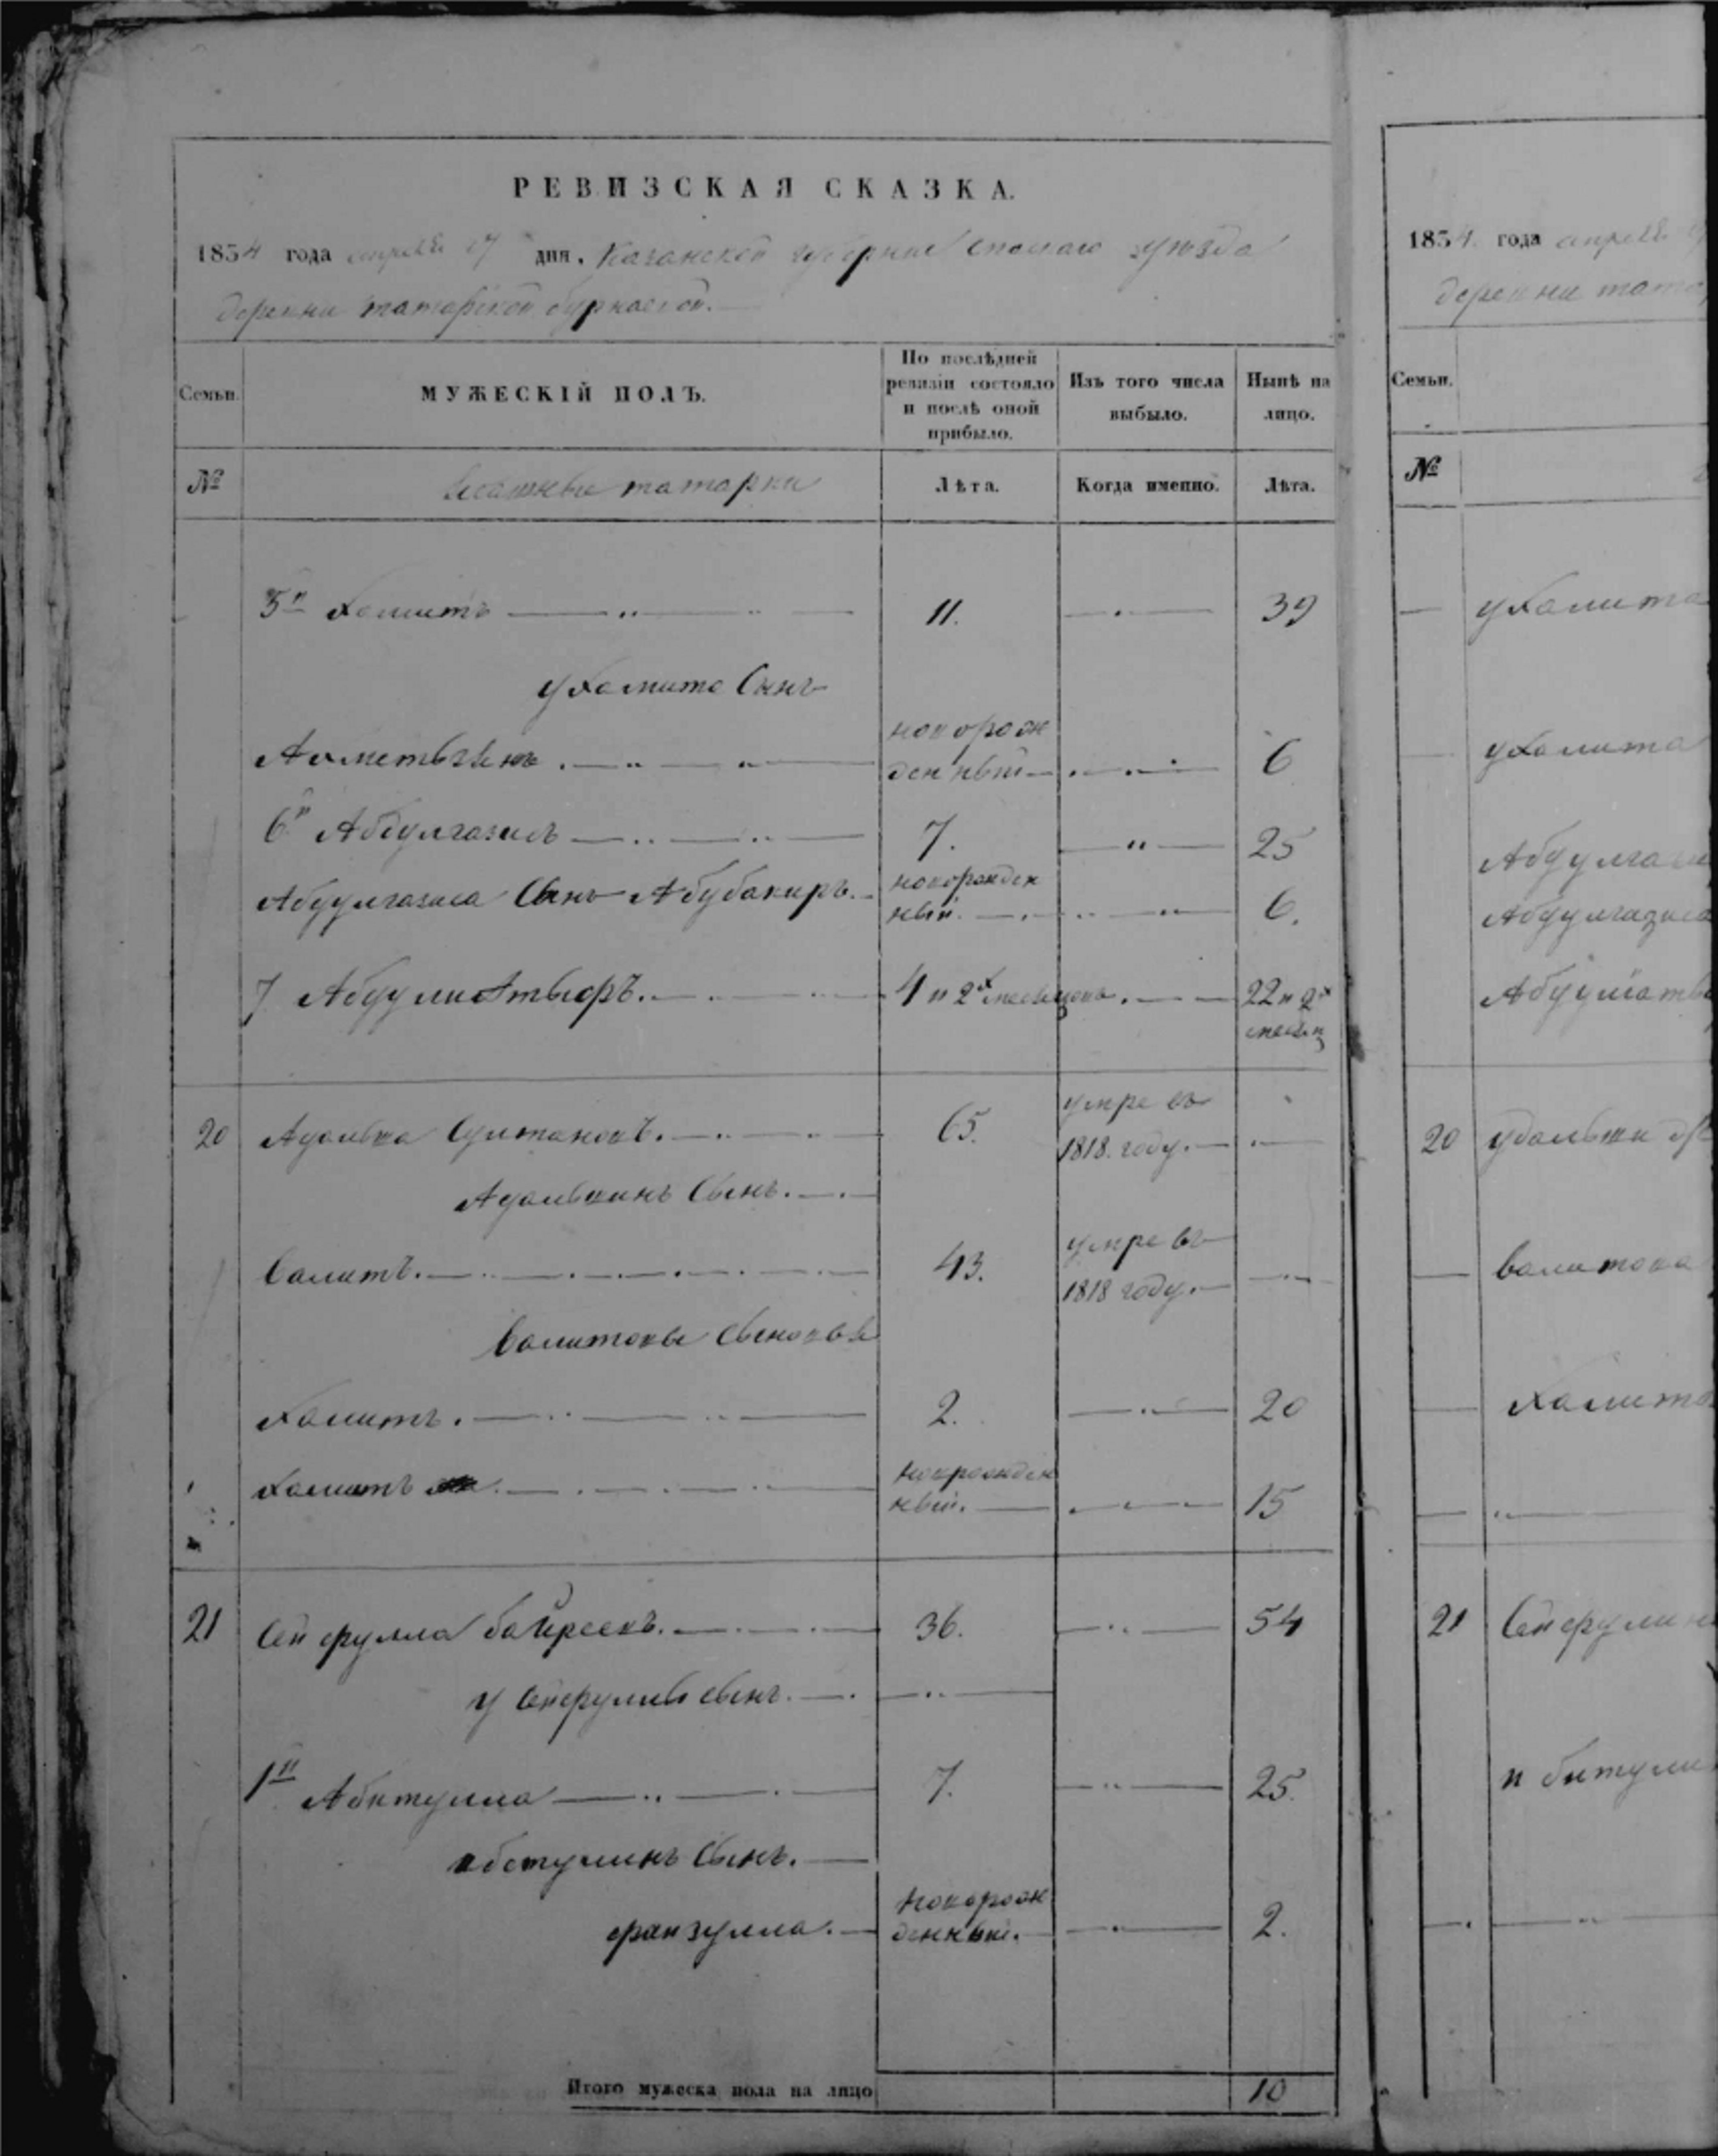 РЕВИЗСКАЯ СКАЗКА.
1834 года апреля 27 дня. Казанской губернии Спаскаго уезда
деревни татарской бурнаевой.
Семьи.
МУЖЕСКІЙ ПОЛЪ.
По послѣдней ревизіи состояло и послѣ оной прибыло.
Изъ того числа выбыло.
Нынѣ на лицо.
№
ясашные татары
Лѣта.
Когда именно.
Лѣта.
5й Хамитъ 11. 39
у Хамита Сынъ
новорож
Ахметьзянъ денный 6
6й Абдулгазисъ 7. 25
Абдулгазиса Сынъ Абубакиръ. новорожден
ный. 6.
7 4 и 2х месецовъ. 22 и 2х
месец
20 Адольша Султановъ. 65. умре въ
1818. году.
Сынъ.
Валитъ. 43. умре въ
1818 году.
Валитовы Сыновья
Халитъ. 2. 20
Хамитъ новрожден
ный. 15
21 Сейфулла 36. 54
у Сейфуллы сынъ.
1й Абитулла 7. 25.
Сынъ.
новорож
файзулла. денный. 2.
Итого мужеска пола на лицо 10
1834 года апреля
деревни татар
Семьи.
№
у Хамита
у Хамита
Абдулгази
Абдулгазиса
20
Валитова
Халита
21 Сейфулин